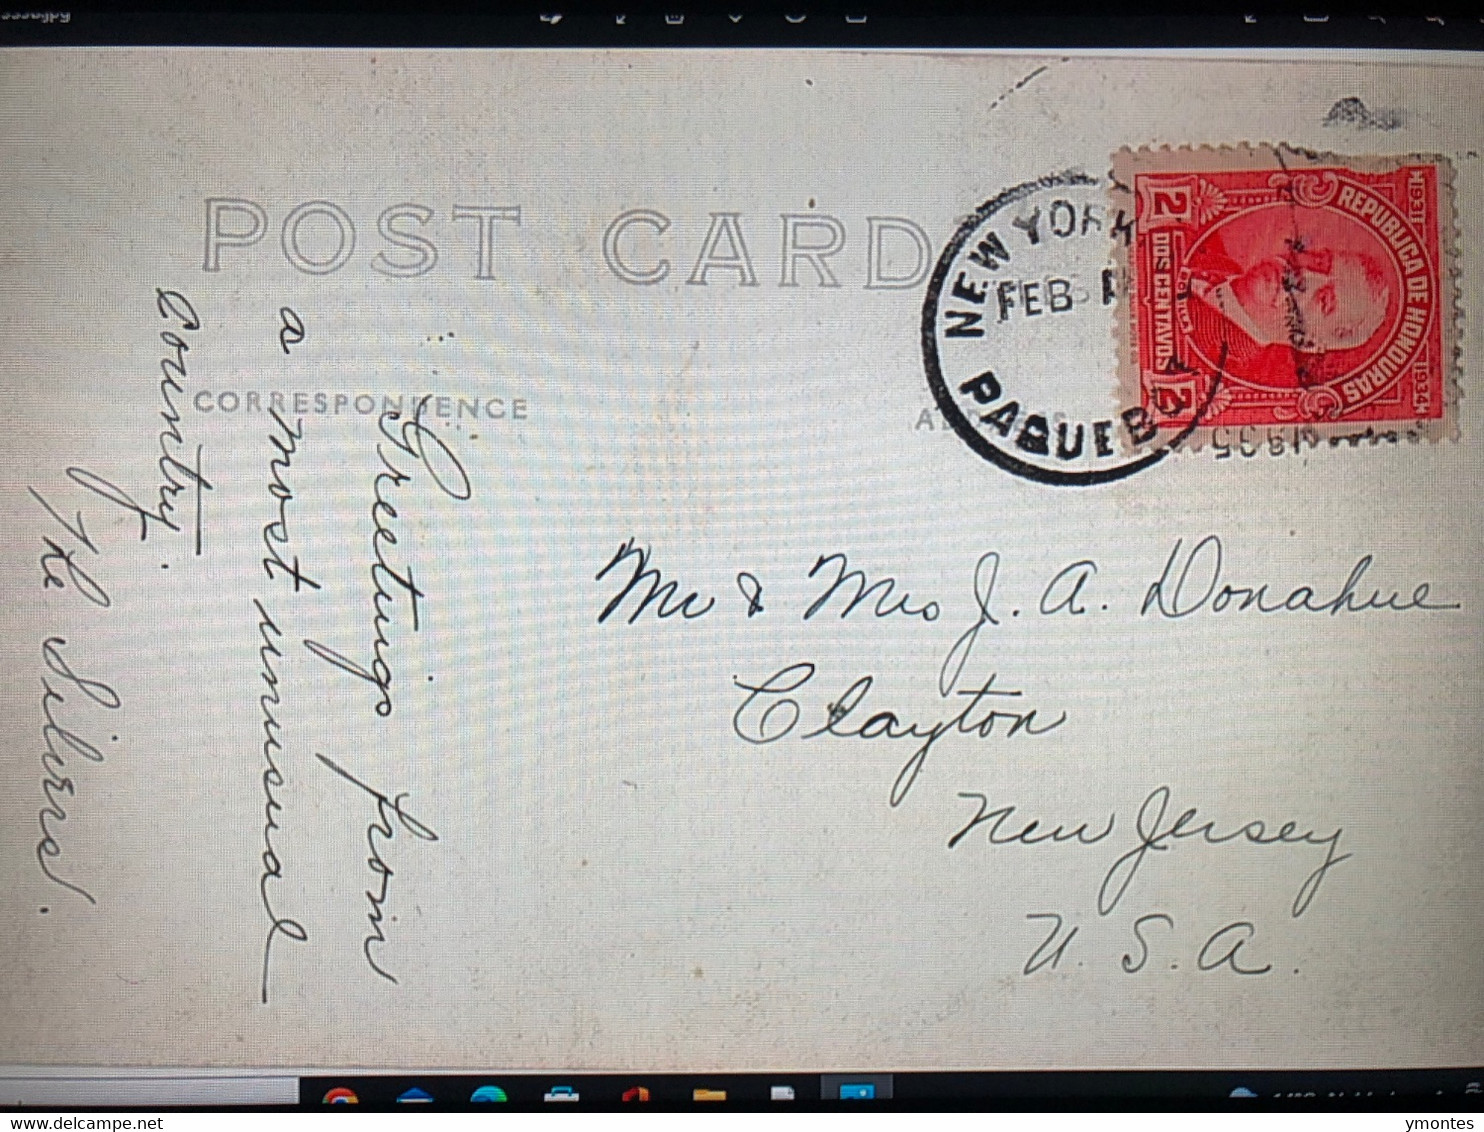 POST CARD
CORRESPONDENCE
Greetings from
a most unusual
country.
The Silvers.
NEW YORK
FEB
PAQUEBOT
1935
REPUBLICA DE HONDURAS
1931
1934
2
DOS CENTAVOS
2
Mr & Mrs J. A. Donahue
Clayton
New Jersey
U. S. A.
www.delcampe.net
ymontes